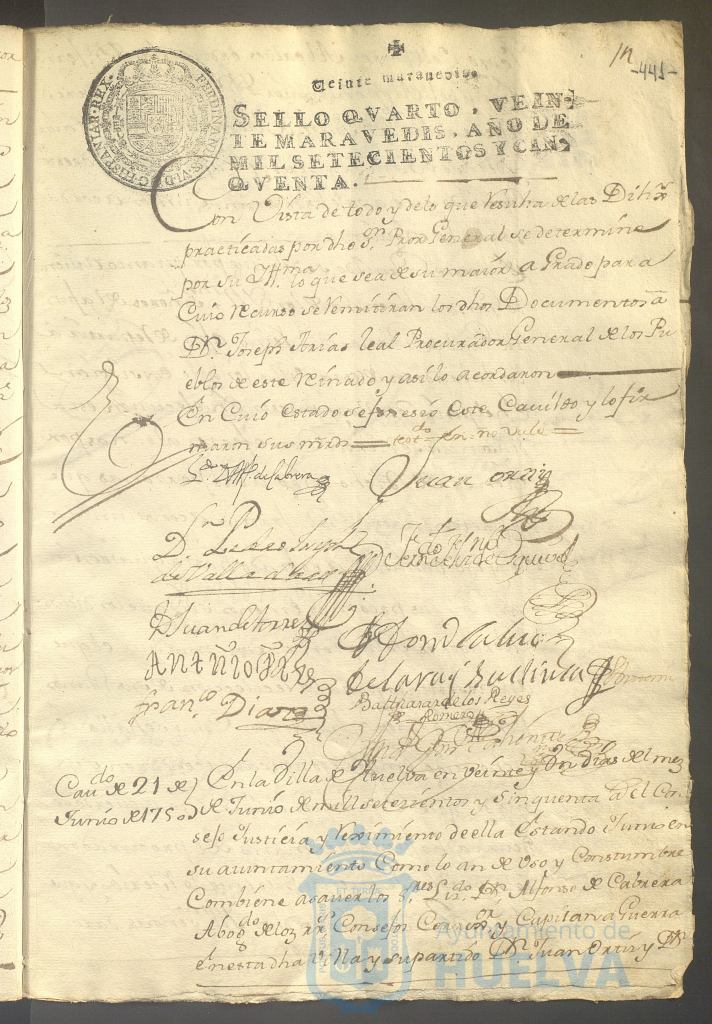 1n
-441-
Veinte maravedis.
SELLO QVARTO, VEIN-
TE MARAVEDIS, AÑO DE
MIL SETECIENTOS Y CIN-
QVENTA.
FERDINANDUS.VI.D.G.HISPANIAR.REX.
Con Vista de todo y de lo que resulta de las Dilixs
practicadas por dho Sr. Pror General se determine
por su Illma. lo que sea de su maior aGrado para
Cuio recurso se remitiran los dhos Documentos a
Dn. Joseph Arias leal Procurador General de los Pu
eblos de este reinado y asi lo acordaron
En Cuio estado se feneció este Cavildo y lo fir
maron sus mrds = tdo = en = no vale =
Ldo. Alfo. de Cabrera
Juan ortiz
Dn. Pedro
de Valle
D Juan de torres
Antonio
Franco Diaz
de lara y
Balthasar de los Reyes
Romero
Cavdo de 21 de
Junio de 1750
En la Villa de Huelva en veinte y Un dias del mes
de Junio de mill setezientos y Sinquenta a. el Con
sejo Justicia y reximiento de ella Estando Juntos en
su aiuntamiento Como lo an de Uso y Constumbre
Combiene a saver los Sres Lizdo. Dn Alfonso de Cabrera
Abogdo de los rrs Consejos Corexor y Capitan a Guerra
en esta dha Villa y su partido Dn Juan Ortiz y Dn
Ayuntamiento de
HUELVA